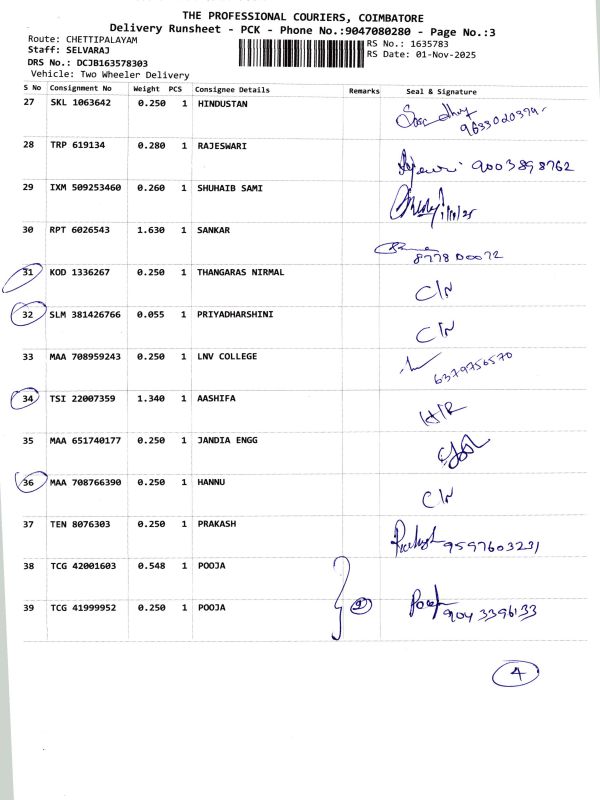 THE PROFESSIONAL COURIERS, COIMBATORE
Delivery Runsheet - PCK - Phone No.:9047080280 - Page No.:3
Route: CHETTIPALAYAM
Staff: SELVARAJ
RS No.: 1635783
RS Date: 01-Nov-2025
DRS No.: DCJB163578303
Vehicle: Two Wheeler Delivery
S No Consignment No Weight PCS Consignee Details Remarks Seal & Signature
27 SKL 1063642 0.250 1 HINDUSTAN
28 TRP 619134 0.280 1 RAJESWARI 9003898762
29 IXM 509253460 0.260 1 SHUHAIB SAMI
30 RPT 6026543 1.630 1 SANKAR
31 KOD 1336267 0.250 1 THANGARAS NIRMAL C/N
32 SLM 381426766 0.055 1 PRIYADHARSHINI C/N
33 MAA 708959243 0.250 1 LNV COLLEGE 6379756570
34 TSI 22007359 1.340 1 AASHIFA
35 MAA 651740177 0.250 1 JANDIA ENGG
36 MAA 708766390 0.250 1 HANNU C/N
37 TEN 8076303 0.250 1 PRAKASH 9597603231
38 TCG 42001603 0.548 1 POOJA
39 TCG 41999952 0.250 1 POOJA 2 9043396133
4